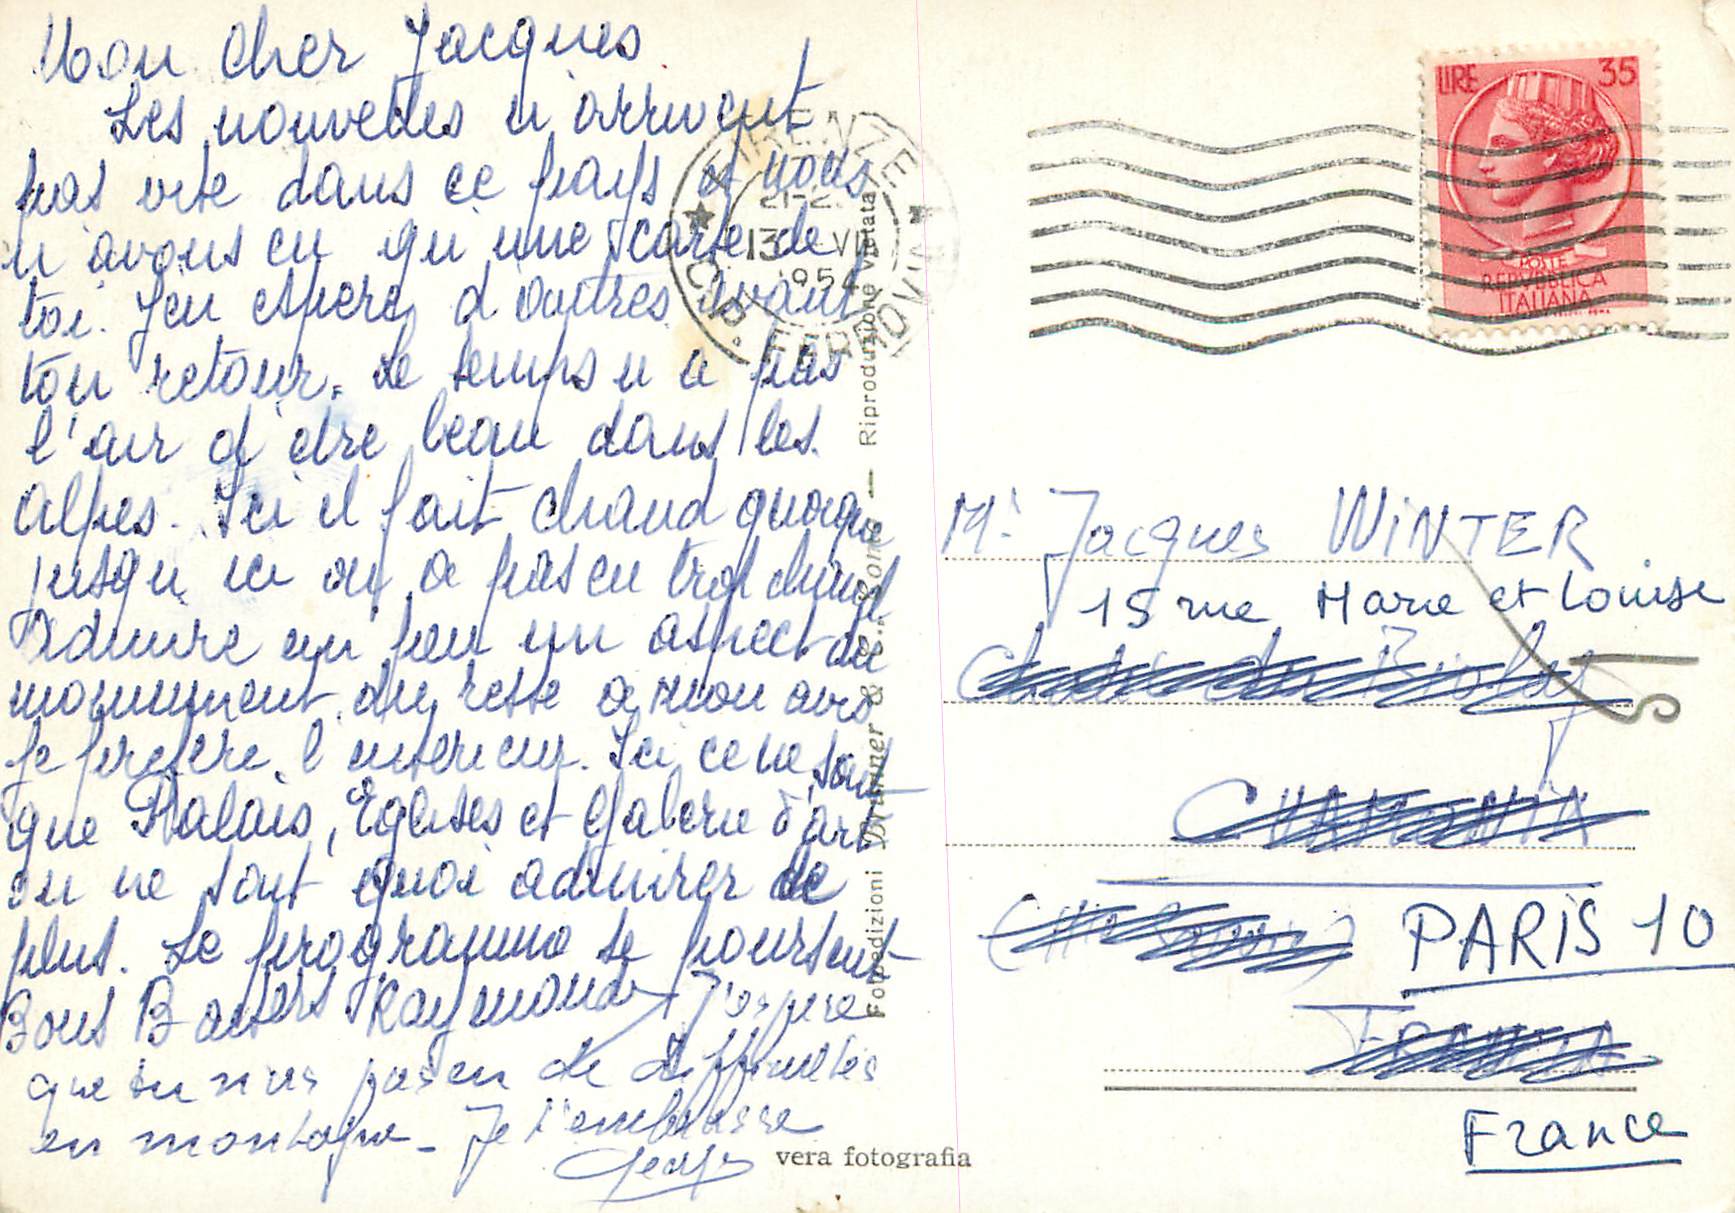 Mon cher Jacques
Les nouvelles n'arrivent
pas vite dans ce pays et nous
n'avons eu qu'une carte de
toi. J'en espere d'autres avant
ton retour. Le temps n'a pas
l'air d'etre beau dans les
alpes. Ici il fait chaud quoique
jusqu'ici on a pas eu trop chaud
admire un peu un aspect du
monument du reste a mon avis
je prefere l'interieur. Ici ce ne sont
que Palais, Eglises et Galerie d'art
on ne sait quoi admirer de
plus. Le programme se poursuit
Bons Baisers Raymonde J'espere
que tu n'as pas eu de difficultés
en montagne - Je t'embrasse
vera fotografia
FIRENZE
FERROVIA
21-2
13 VII
1954
Fotoedizioni Brunner & C. Como — Riproduzione vietata
LIRE 35
POSTE
REPVBBLICA
ITALIANA
Mr Jacques WINTER
15 rue Marie et Louise
Chalet du Biolay
CHAMONIX
PARIS 10
FRANCIA
France